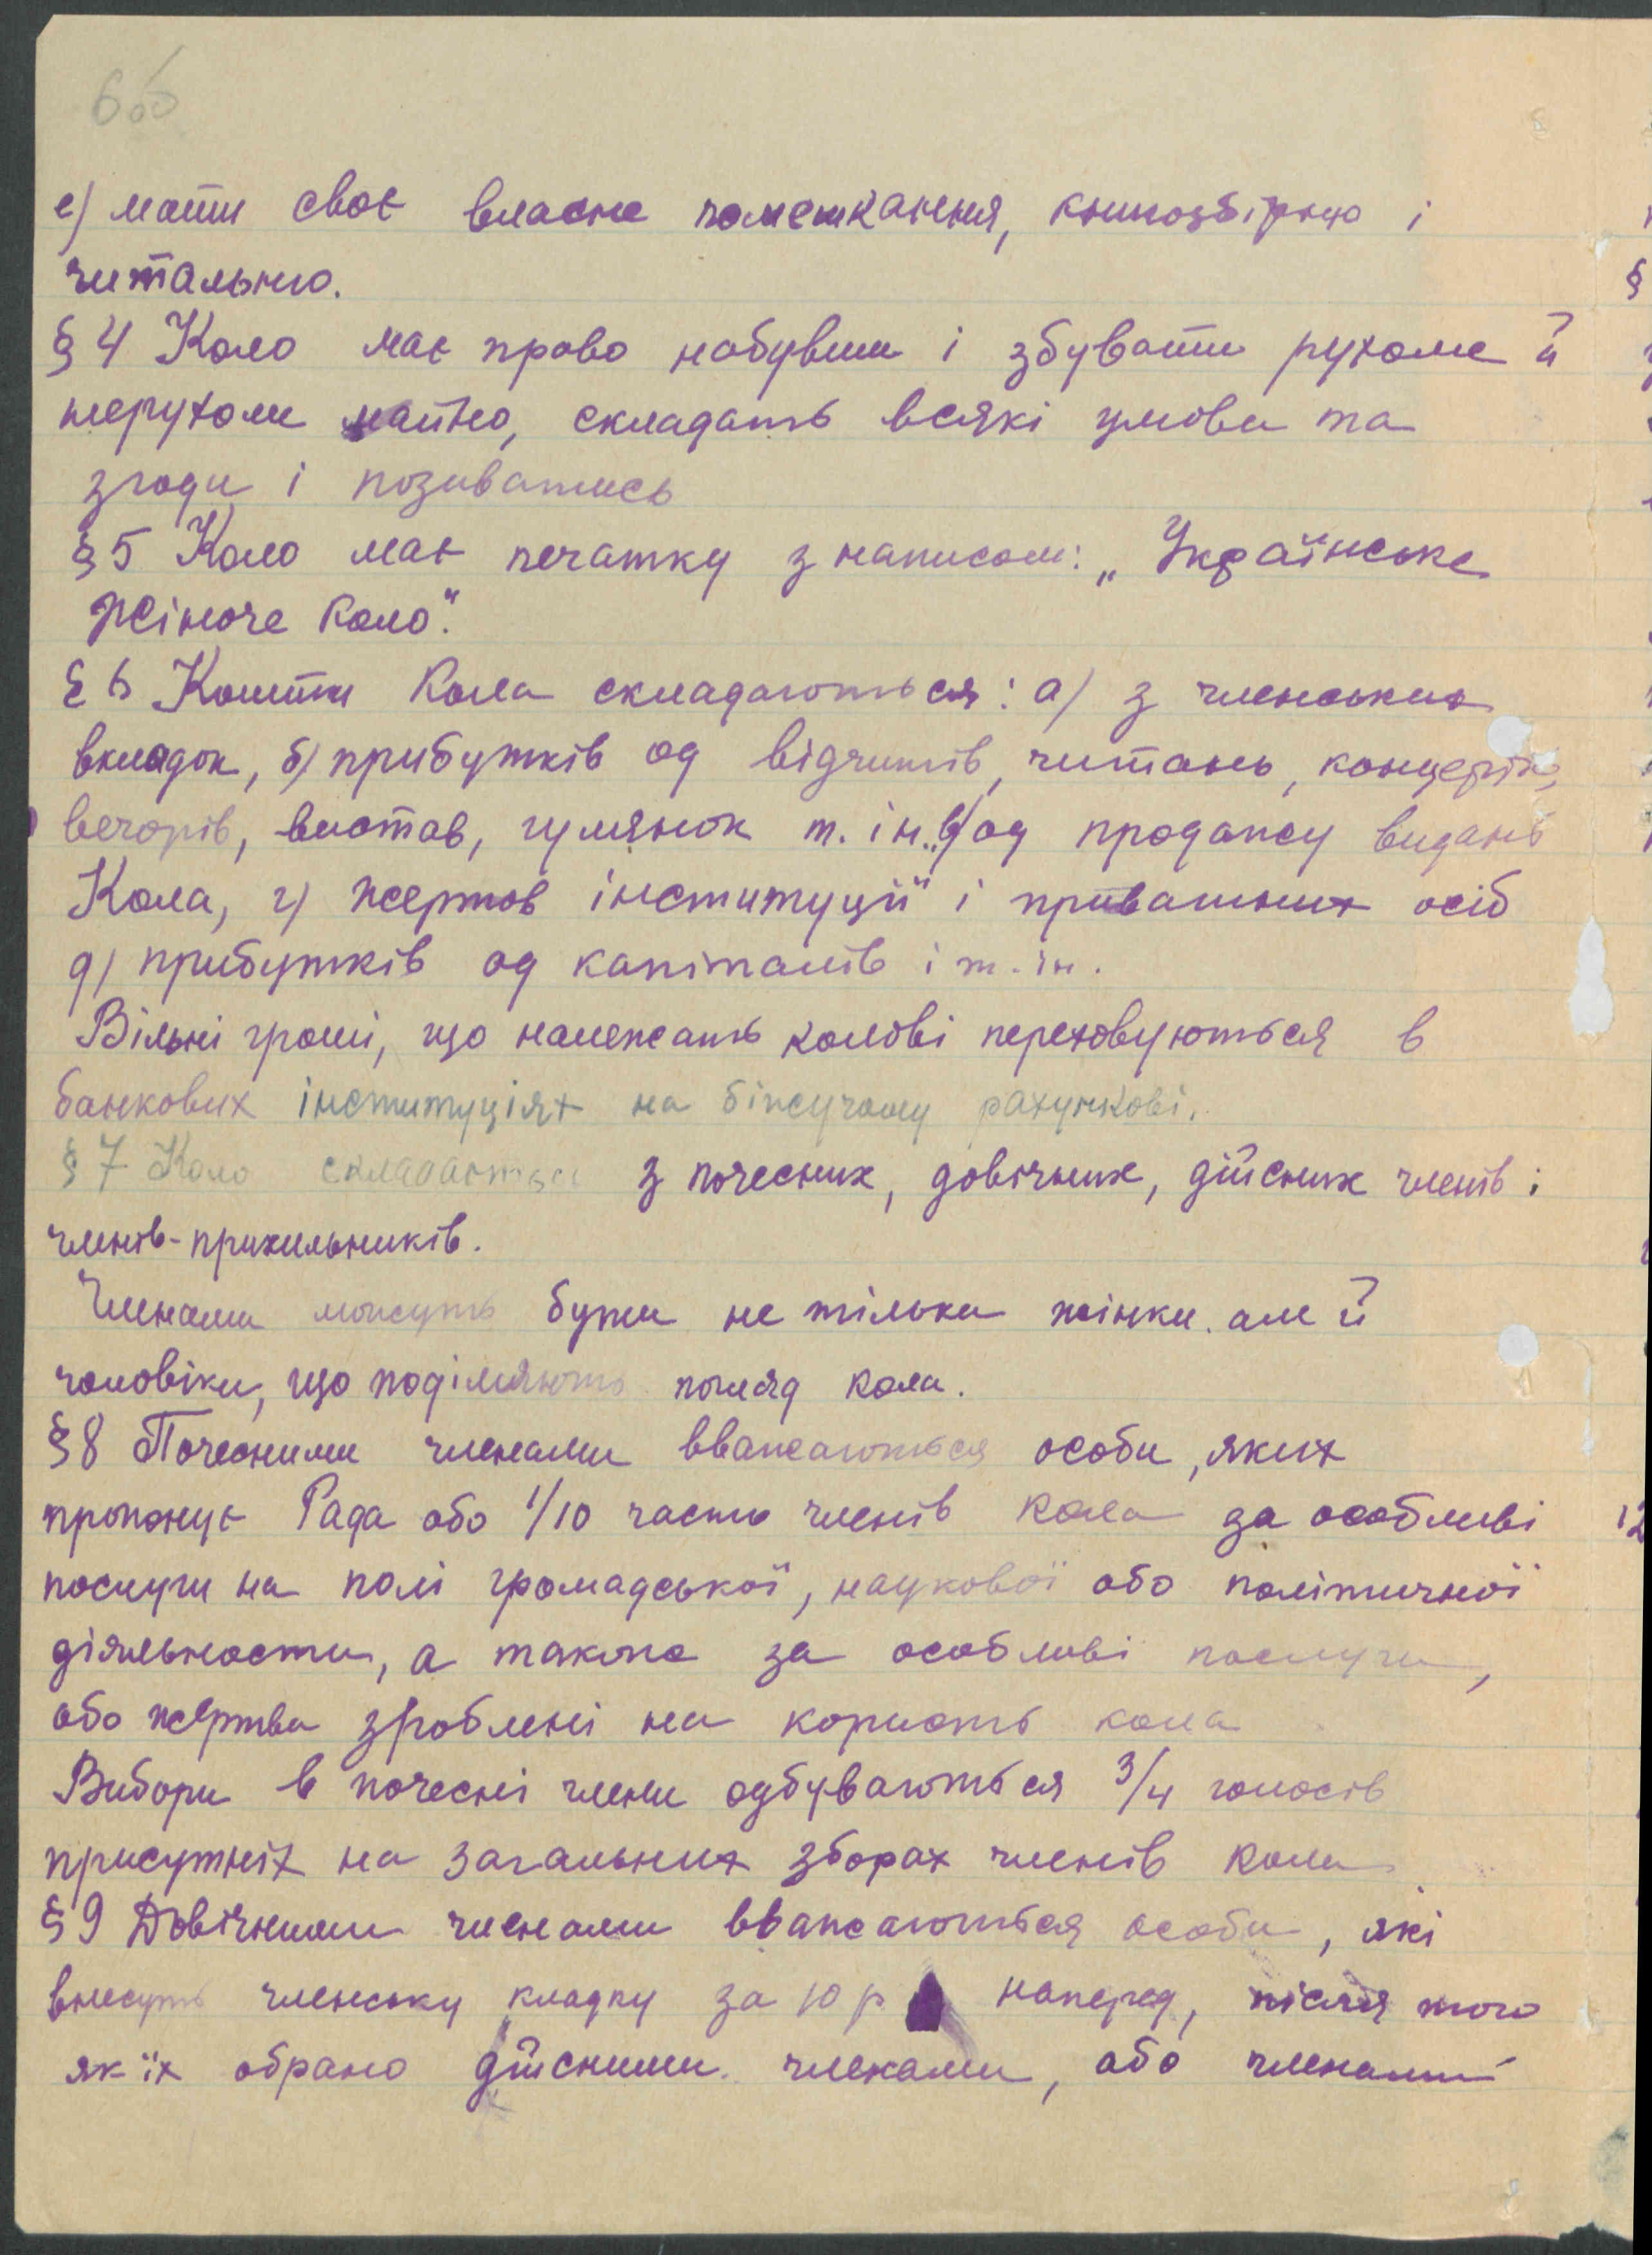 е) мати своє власне помешкання, книгозбірню і
читальню.
§ 4 Коло має право набувши і збувати рухоме й
нерухоме майно, складать всякі умови та
згоди і позиватись
§ 5 Коло має печатку з написом: „Українське
Жіноче Коло".
§ 6 Кошти Кола складаються: а) з членських
вкладок, б) прибутків од відчитів, читань, концертів,
вечорів, вистав, гулянок т. ін. в) од продажу видань
Кола, г) жертов інституцій і приватних осіб
д) прибутків од капіталів і т. ін.
Вільні гроші, що належать колові переховуються в
банкових інституціях на біжучому рахункові.
§ 7 Коло складається з почесних, довічних, дійсних членів і
членів-прихильників.
Членами можуть бути не тільки жінки. але й
чоловіки, що поділяють погляд кола.
§ 8 Почесними членами вважаються особи, яких
пропонує Рада або 1/10 часть членів Кола за особливі
послуги на полі громадської, наукової або політичної
діяльности, а також за особливі послуги,
або жертви зроблені на користь кола
Вибори в почесні члени одбуваються 3/4 голосів
присутніх на загальних зборах членів кола
§ 9 Довічними членами вважаються особи, які
внесуть членську кладку за 10 р наперед, після того
як їх обрано дійсними членами, або членами